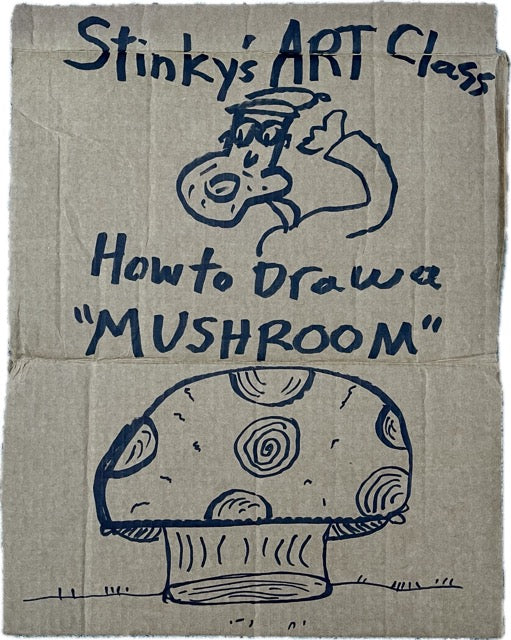 Stinky's ART Class
How to Draw a
"MUSHROOM"